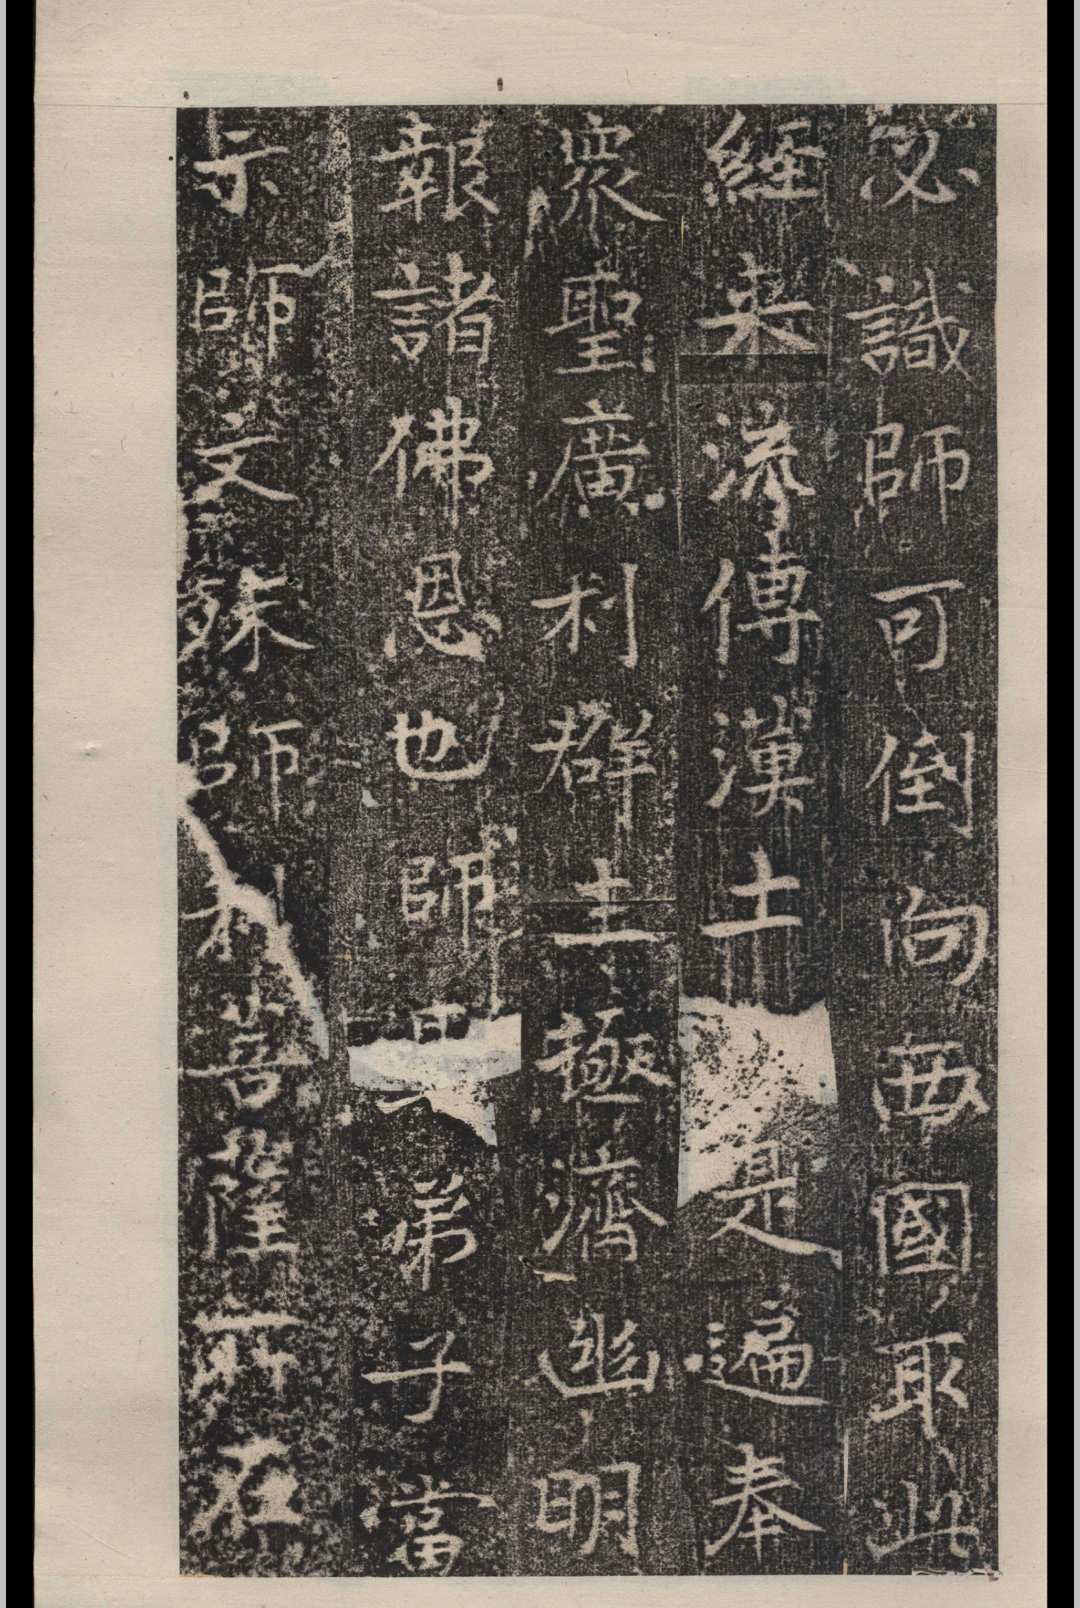 必識師可倒向西國取此
經来流傳漢土是遍奉
衆聖廣利群生拯濟幽明
報諸佛恩也師弟子當
示師文殊師利菩薩所在